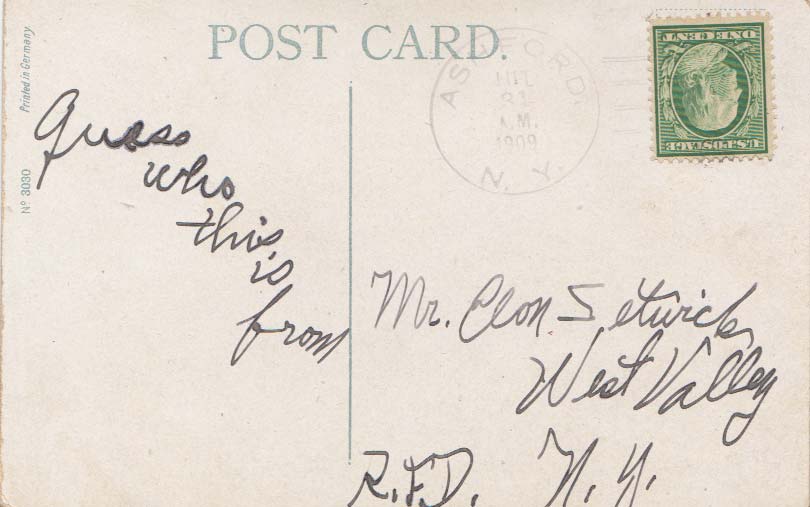 POST CARD.
Printed in Germany
Nº 3030
Guess
who
this
is
from
ASHFORD.
JUL
31
A.M.
1909
N. Y.
U.S. POSTAGE
ONE CENT
Mr. Clon
West Valley
R.F.D. N.Y.